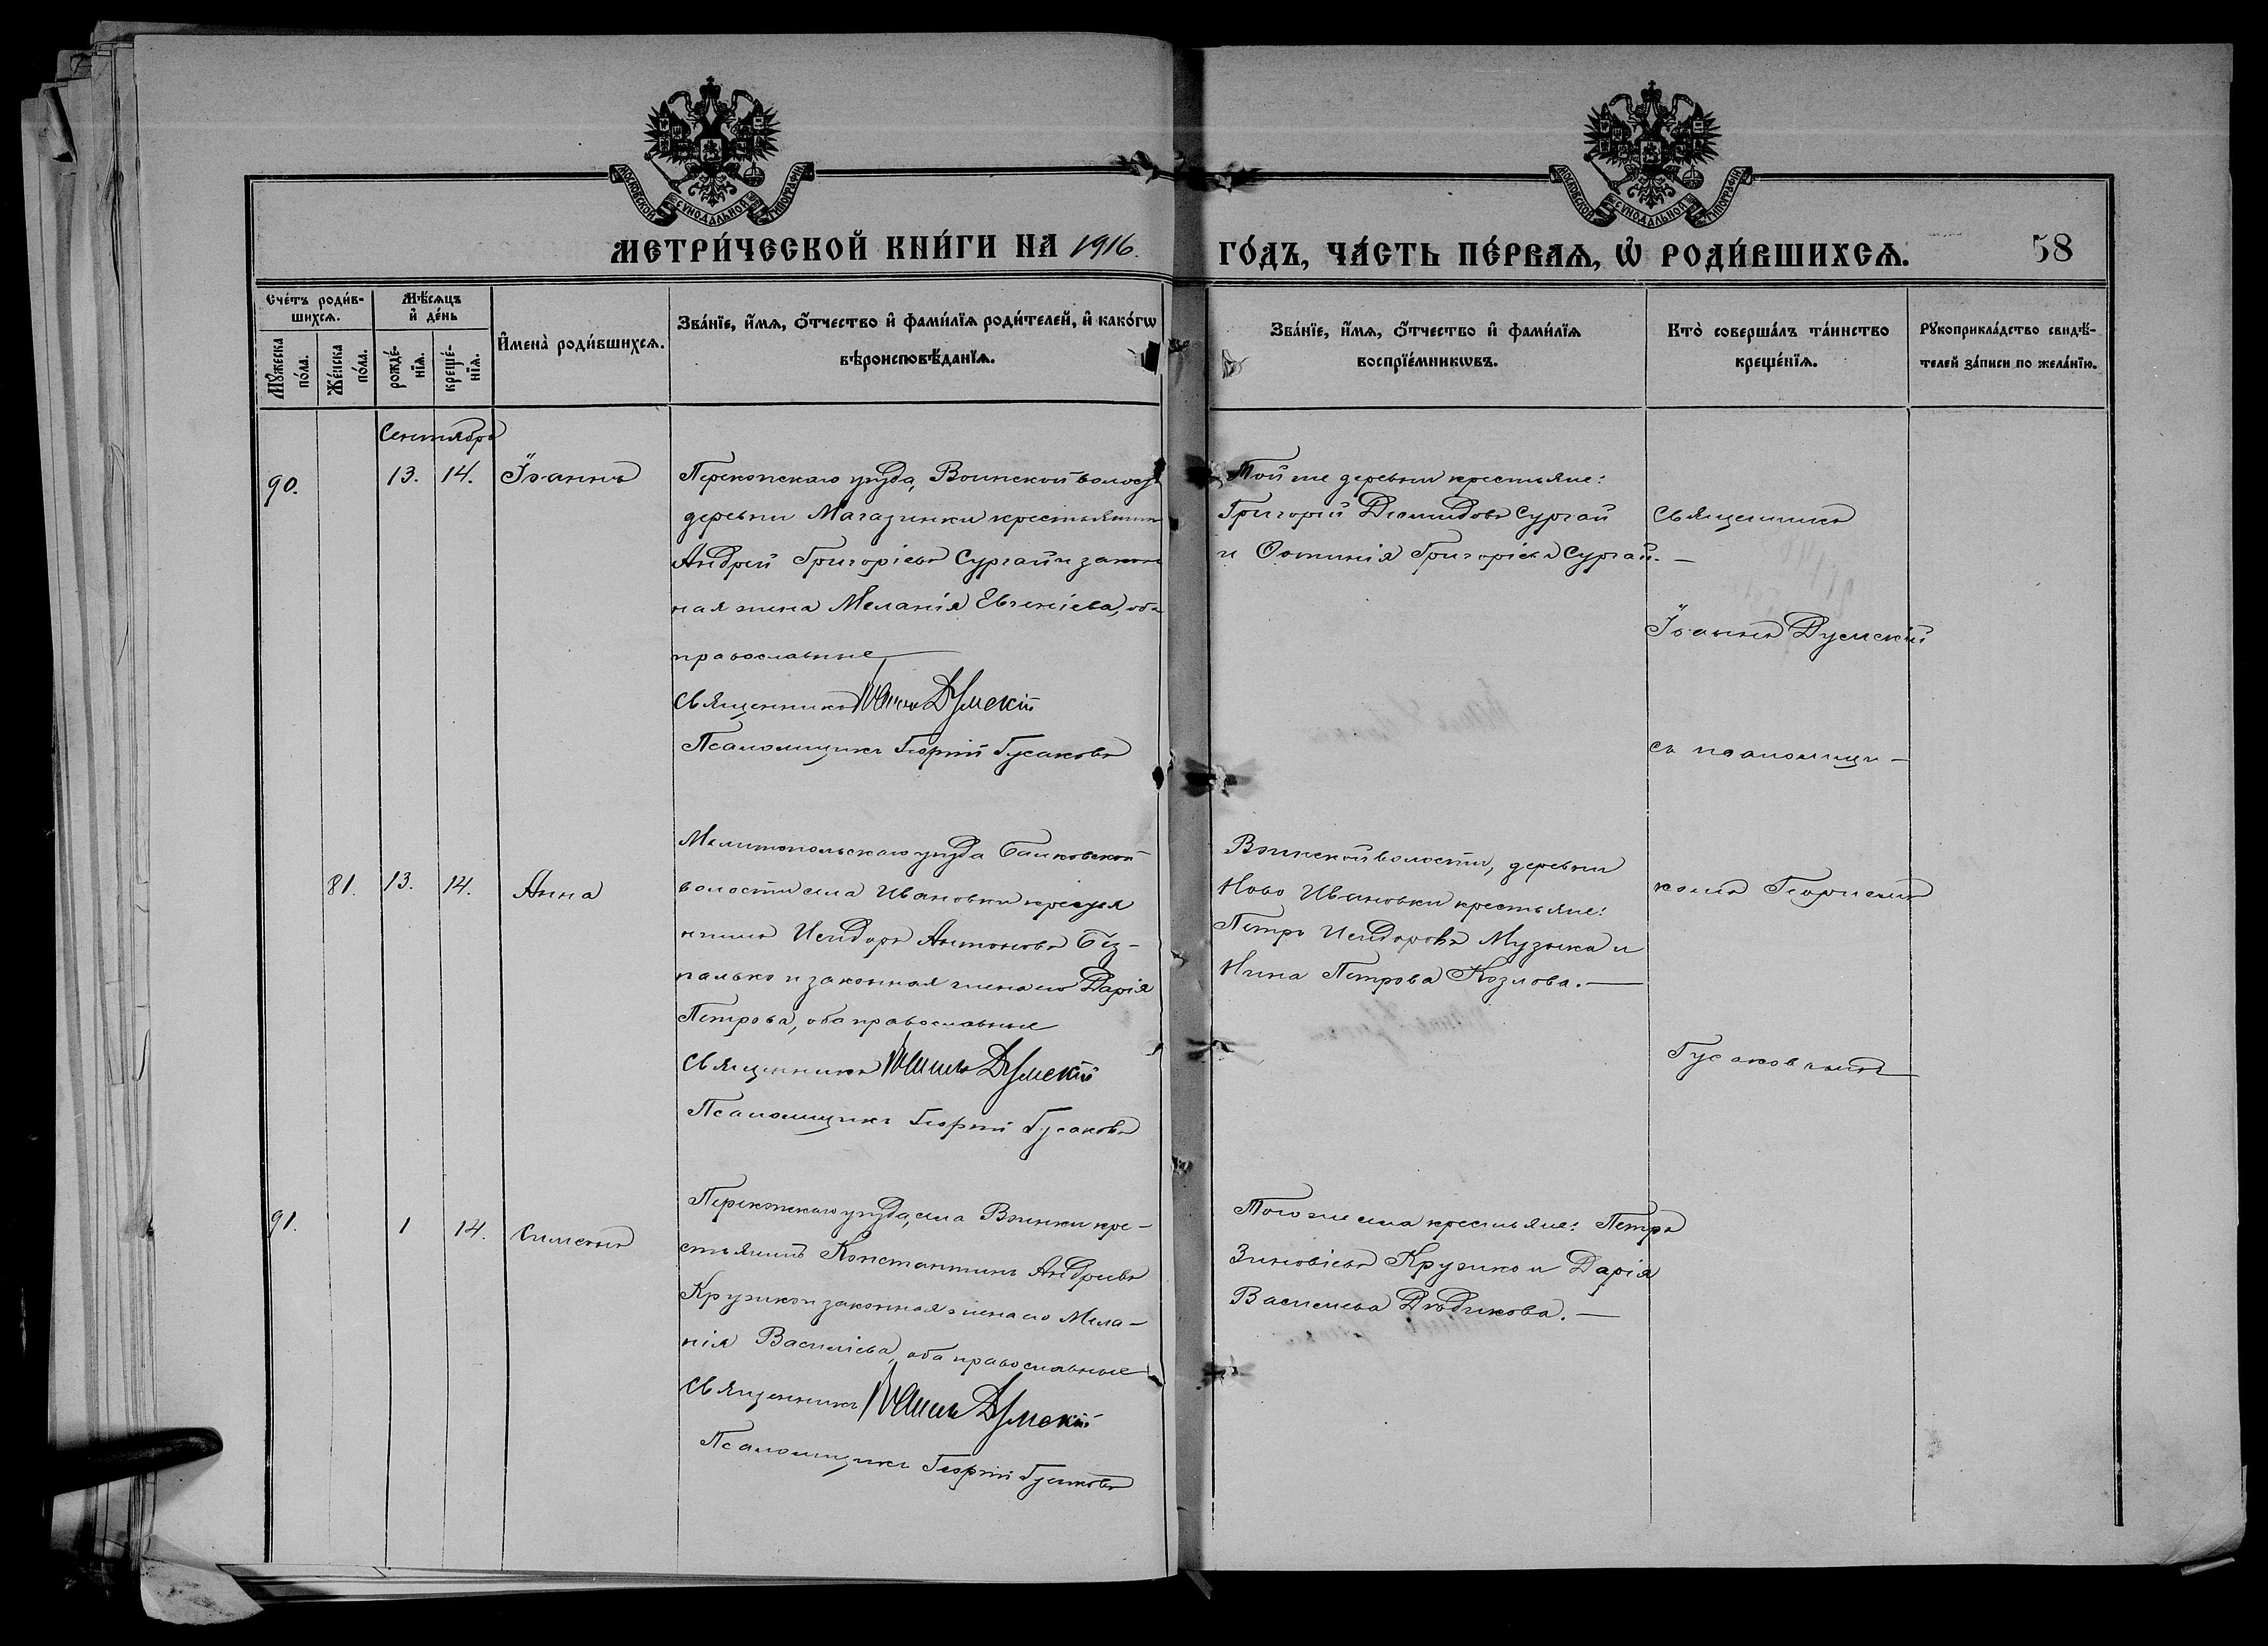 МОСКОВСКОЙ СѴНОДАЛЬНОЙ ТИПОГРАФІИ
МОСКОВСКОЙ СѴНОДАЛЬНОЙ ТИПОГРАФІИ
МЕТРИ́ЧЕСКОЙ КНИ́ГИ НА 1916.
ГО́ДЪ, ЧА́СТЬ ПЕ́РВАѦ, Ѡ҆ РОДИ́ВШИХСѦ.
58
Сче́тъ роди́в-
шихсѧ.
Мꙋ́жеска по́ла.
Же́нска по́ла.
Мѣ́сѧцъ
и҆ де́нь
рожде́-нїѧ.
креще́-нїѧ.
И҆мена̀ роди́вшихсѧ.
Зва́нїе, и҆́мѧ, ѻ҆́тчество и҆ фами́лїѧ роди́телей, и҆ како́гѡ
вѣроисповѣ́данїѧ.
Зва́нїе, и҆́мѧ, ѻ҆́тчество и҆ фами́лїѧ
воспрїе́мникѡвъ.
Кто̀ соверша́лъ та́инство
креще́нїѧ.
Рꙋкоприкла́дство свидѣ́-
телей за́писи по жела́нїю.
Сентябрь
90.
13. 14.
Іоаннъ
Перекопскаго уѣзда, Воинской волост
деревни Магазинки крестьянин
Андрей Григоріевъ Сургай и закон
ная жена Меланія Евгеніева, оба
православные
Священникъ Іоаннъ Думскій
Псаломщикъ Георгій Гусаковъ
Той же деревни крестьяне:
Григорій Діомидовъ Сургай
и Фотинія Григорьева Сургай. —
Священникъ
Іоаннъ Думскій
съ псаломщи-
комъ Георгіемъ
Гусаковымъ
81. 13. 14.
Анна
Мелитопольскаго уѣзда
волости села Ивановки крестья
нинъ Исидоръ Антоновъ Без-
палько и законная жена его Дарія
Петрова, оба православные
Священникъ Іоаннъ Думскій
Псаломщикъ Георгій Гусаковъ
Воинской волости, деревни
Ново Ивановки крестьяне:
Петръ Исидоровъ Музыка и
Нина Петрова Козлова. —
91.
1 14.
Симеонъ
Перекопскаго уѣзда, села Воинки кре-
стьянинъ Константинъ Андреевъ
Кружко и законная жена его Мела-
нія Василіева, оба православные
Священникъ Іоаннъ Думскій
Псаломщикъ Георгій Гусаковъ
Того же села крестьяне: Петръ
Зиновіевъ Кружко и Дарія
Василіева Дюдикова. —